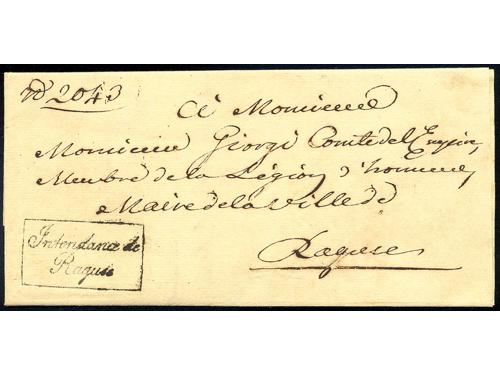 No 2043
A Monsieur
Monsieur Giorgi Comte de l'Empire,
Membre de la Légion d'honneur,
Maire de la Ville de
Raguse
Intendance de
Raguse